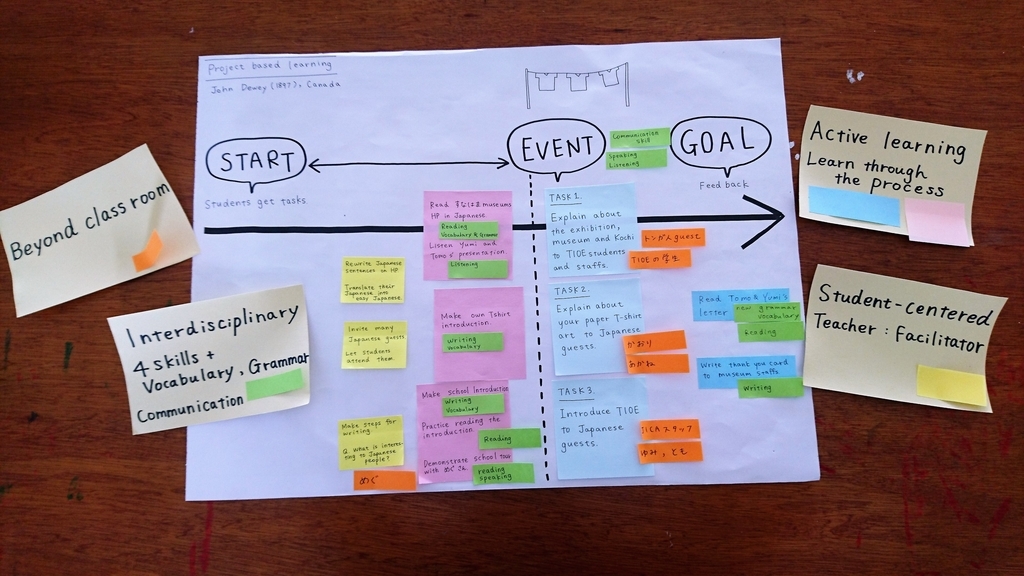 Project based learning
John Dewey (1897), Canada
START
EVENT
GOAL
Communication
skill
Speaking
Listening
Students get tasks
Feed back
Beyond classroom
Interdisciplinary
4 skills +
Vocabulary, Grammar
Communication
Active learning
Learn through
the process
Student-centered
Teacher : Facilitator
Read すなはま museums
HP in Japanese
Reading
Vocabulary & Grammar
Listen Yumi and
Tomo's presentation.
Listening
Rewrite Japanese
sentences on HP
Translate their
Japanese into
easy Japanese
Invite many
Japanese guests
Let students
attend them
Make own Tshirt
introduction.
Writing
Vocabulary
Make school Introduction
Writing
Vocabulary
Practice reading the
introduction.
Reading
Demonstrate school tour
with めぐさん
reading
speaking
Make steps for
writing.
Q. What is interes-
ting to Japanese
people?
めぐ
TASK 1.
Explain about
the exhibition,
museum and Kochi
to TIOE students
and staffs.
トンガ人guest
TIOEの学生
TASK 2.
Explain about
your paper T-shirt
art to Japanese
guests.
かおり
あかね
TASK 3.
Introduce TIOE
to Japanese
guests.
JICAスタッフ
ゆみ、とも
Read Tomo & Yumi's
letter
new grammar
vocabulary
Reading
Write thank you card
to museum staffs.
Writing